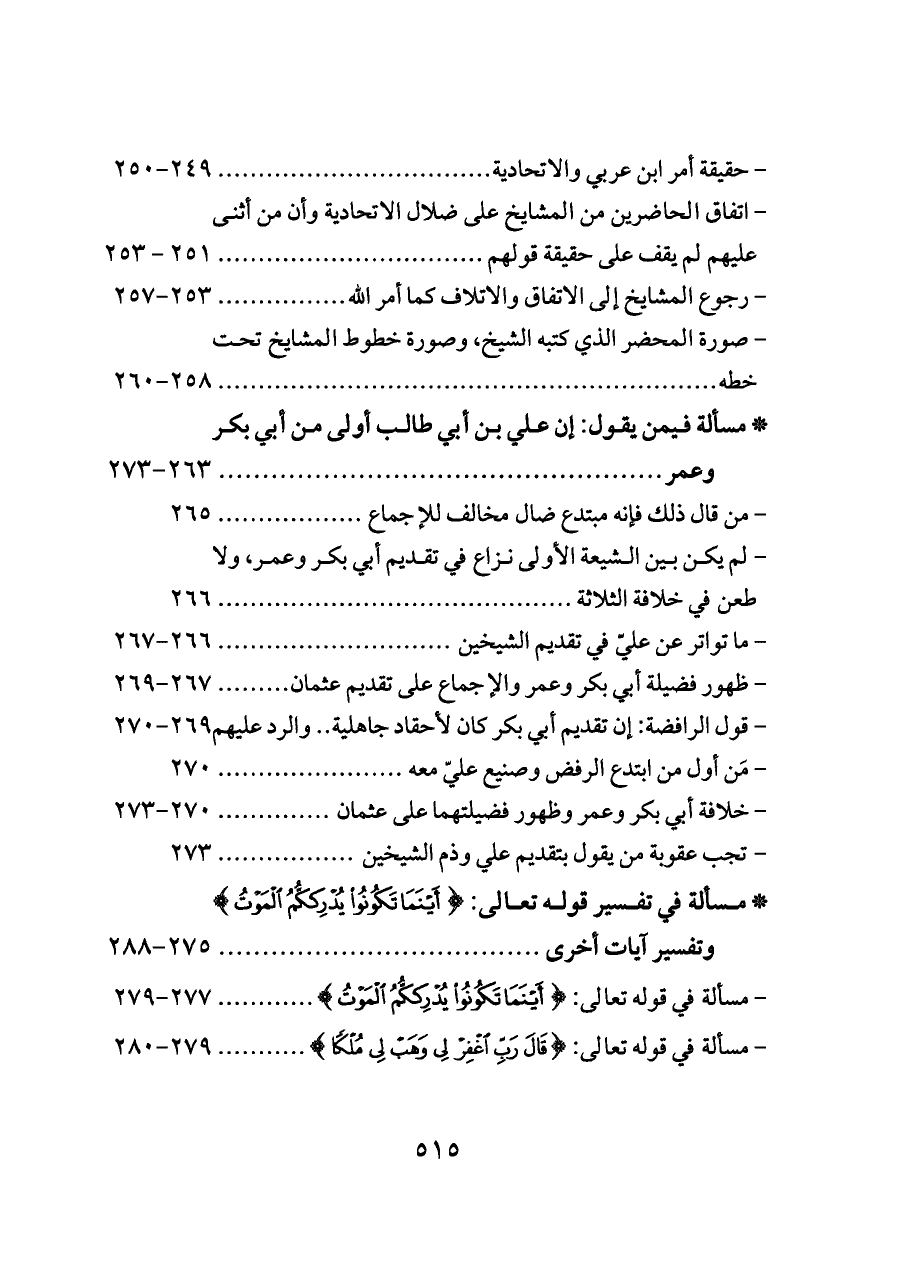 – حقيقة أمر ابن عربي والاتحادية.................................. ٢٤٩–٢٥٠
– اتفاق الحاضرين من المشايخ على ضلال الاتحادية وأن من أثنى
عليهم لم يقف على حقيقة قولهم ................................. ٢٥١ – ٢٥٣
– رجوع المشايخ إلى الاتفاق والاتلاف كما أمر الله................ ٢٥٣–٢٥٧
– صورة المحضر الذي كتبه الشيخ، وصورة خطوط المشايخ تحت
خطه.............................................................. ٢٥٨–٢٦٠
* مسألة فيمن يقول: إن علي بن أبي طالب أولى من أبي بكر
وعمر .................................................. ٢٦٣–٢٧٣
– من قال ذلك فإنه مبتدع ضال مخالف للإجماع .................. ٢٦٥
– لم يكن بين الشيعة الأولى نزاع في تقديم أبي بكر وعمر، ولا
طعن في خلافة الثلاثة ............................................ ٢٦٦
– ما تواتر عن عليّ في تقديم الشيخين ............................. ٢٦٦–٢٦٧
– ظهور فضيلة أبي بكر وعمر والإجماع على تقديم عثمان......... ٢٦٧–٢٦٩
– قول الرافضة: إن تقديم أبي بكر كان لأحقاد جاهلية.. والرد عليهم٢٦٩–٢٧٠
– مَن أول من ابتدع الرفض وصنيع عليّ معه ....................... ٢٧٠
– خلافة أبي بكر وعمر وظهور فضيلتهما على عثمان .............. ٢٧٠–٢٧٣
– تجب عقوبة من يقول بتقديم علي وذم الشيخين ................. ٢٧٣
* مسألة في تفسير قوله تعالى: ﴿ أَيْنَمَا تَكُونُوا۟ يُدْرِككُّمُ ٱلْمَوْتُ ﴾
وتفسير آيات أخرى .................................... ٢٧٥–٢٨٨
– مسألة في قوله تعالى: ﴿ أَيْنَمَا تَكُونُوا۟ يُدْرِككُّمُ ٱلْمَوْتُ ﴾............ ٢٧٧–٢٧٩
– مسألة في قوله تعالى: ﴿ قَالَ رَبِّ ٱغْفِرْ لِى وَهَبْ لِى مُلْكًا ﴾ ........... ٢٧٩–٢٨٠
٥١٥